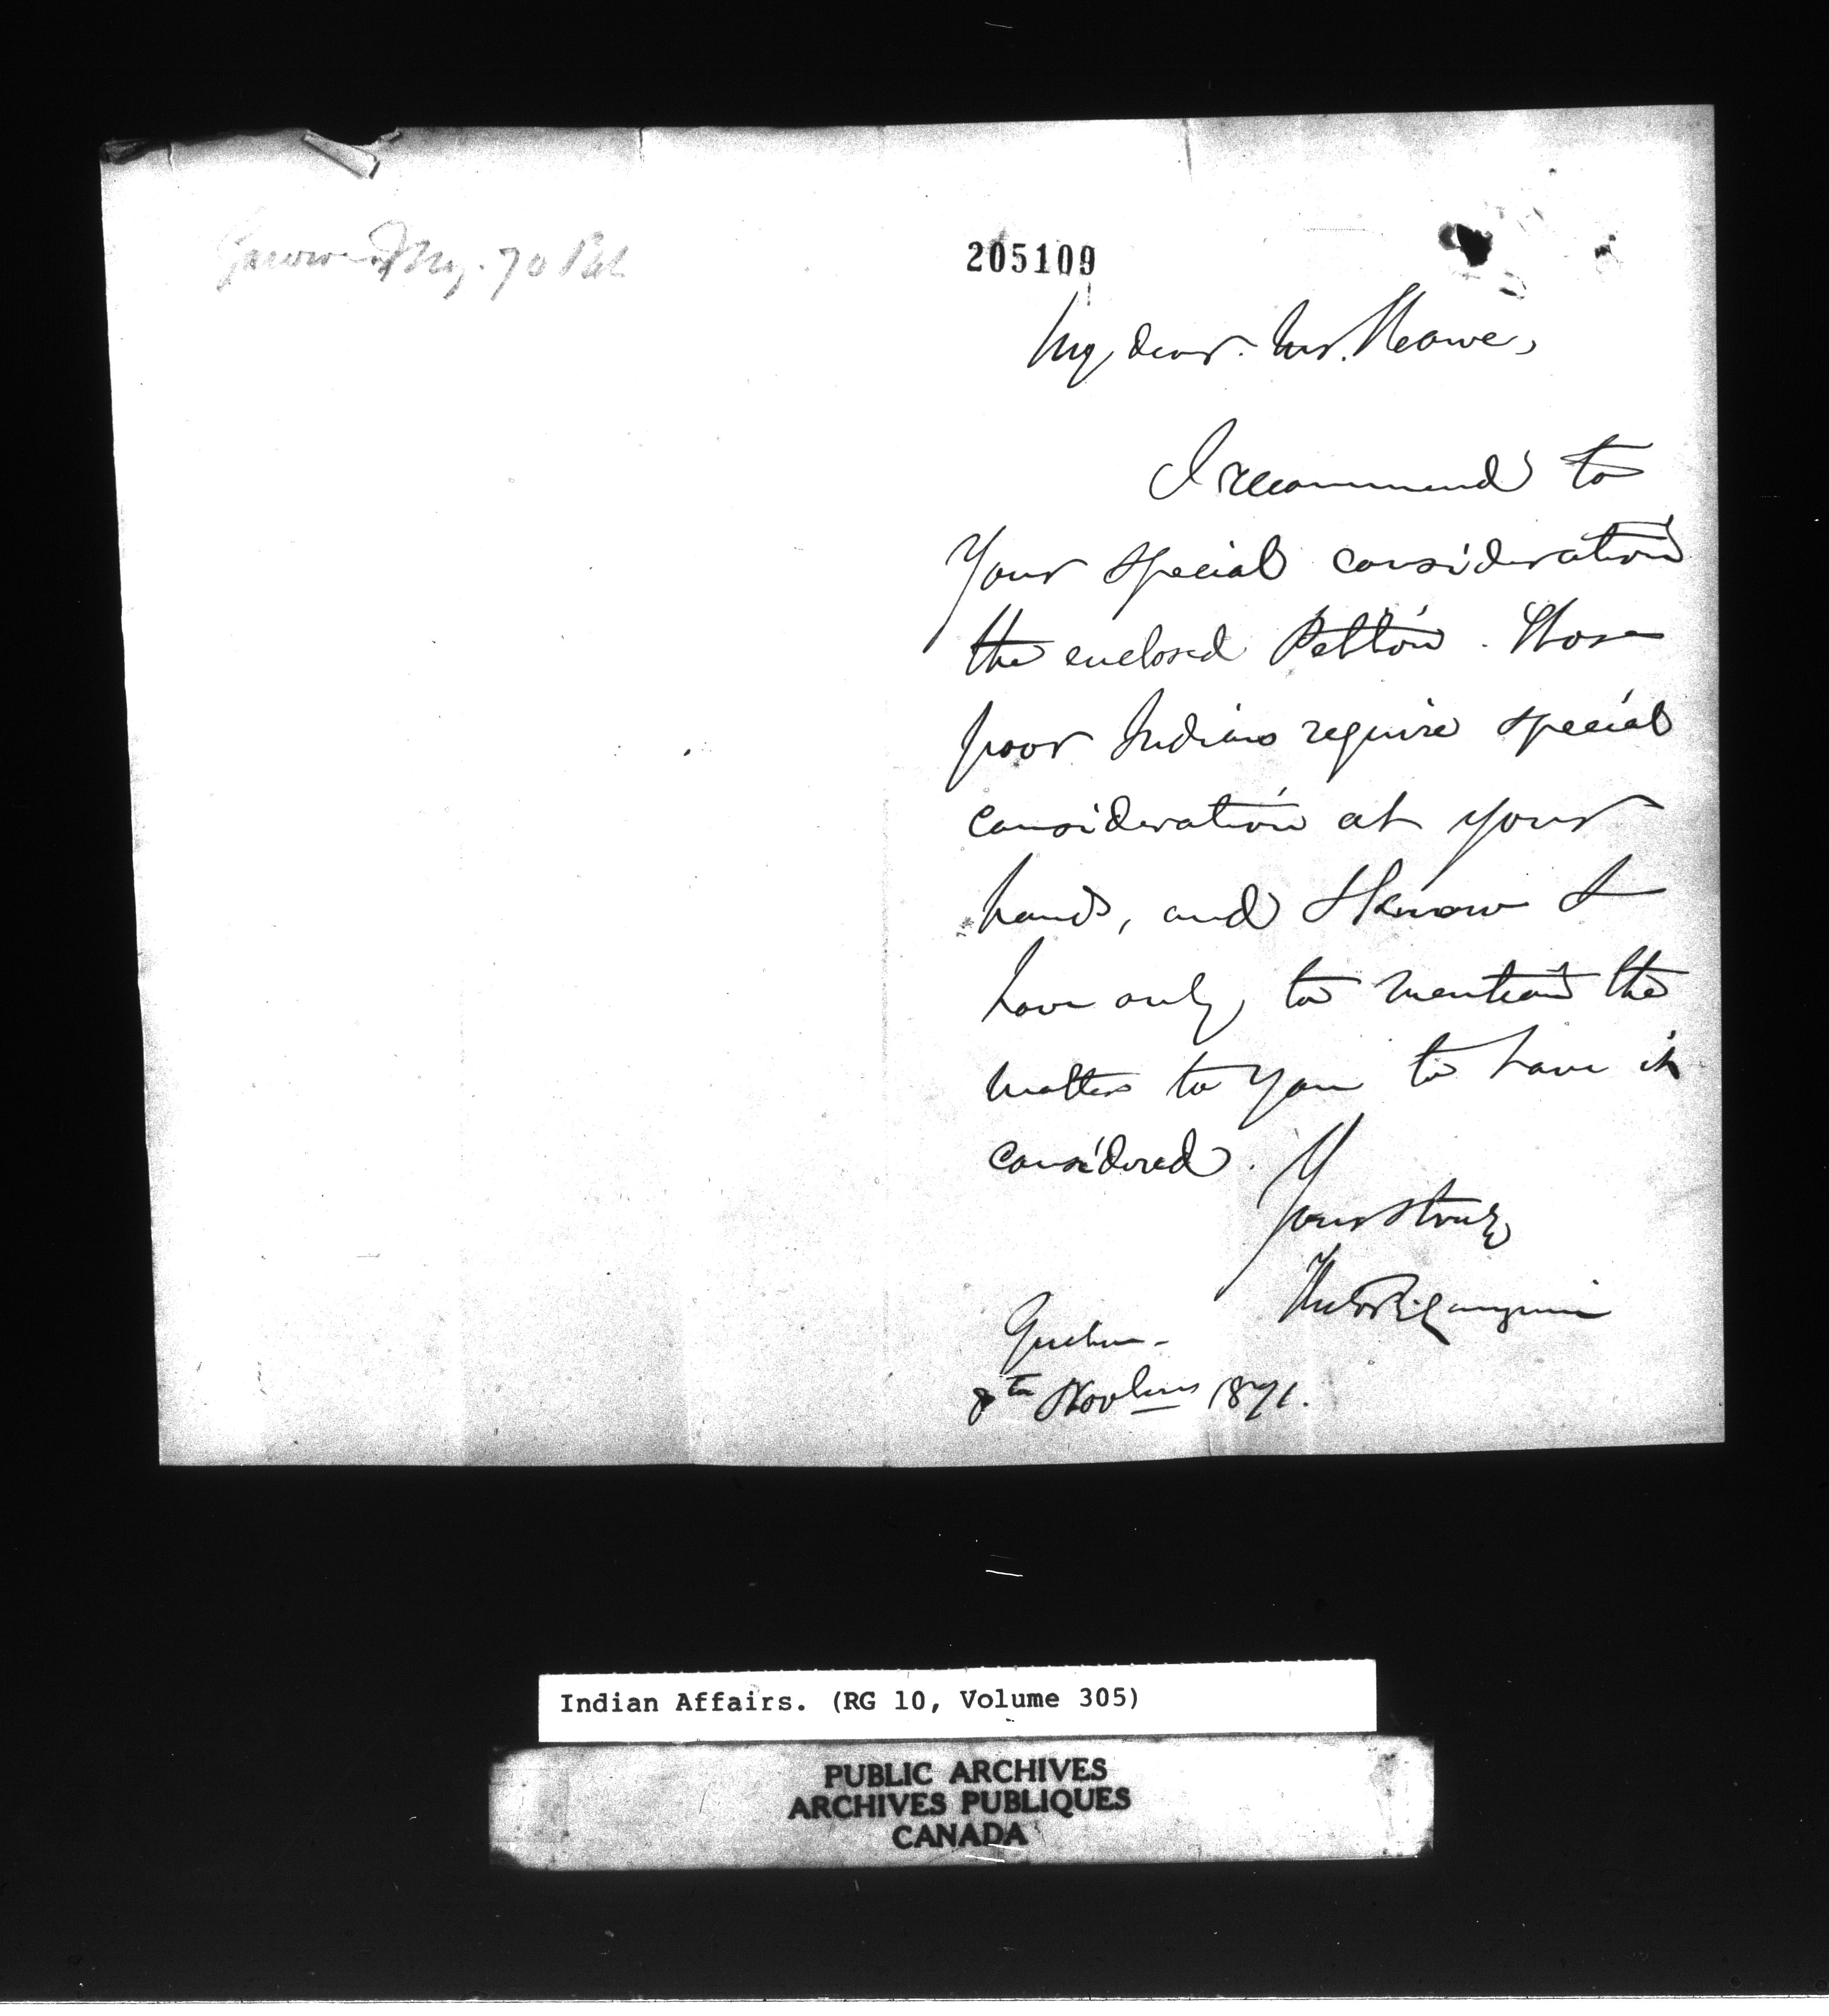 205109
My dear Mr. Howe,
I recommend to
Your special consideration
the enclosed Petition. Those
poor Indians require special
consideration at your
hands, and I know I
have only to mention the
matter to you to have it
considered.
Yours truly
Quebec
8th Novber 1871.
Indian Affairs. (RG 10, Volume 305)
PUBLIC ARCHIVES
ARCHIVES PUBLIQUES
CANADA